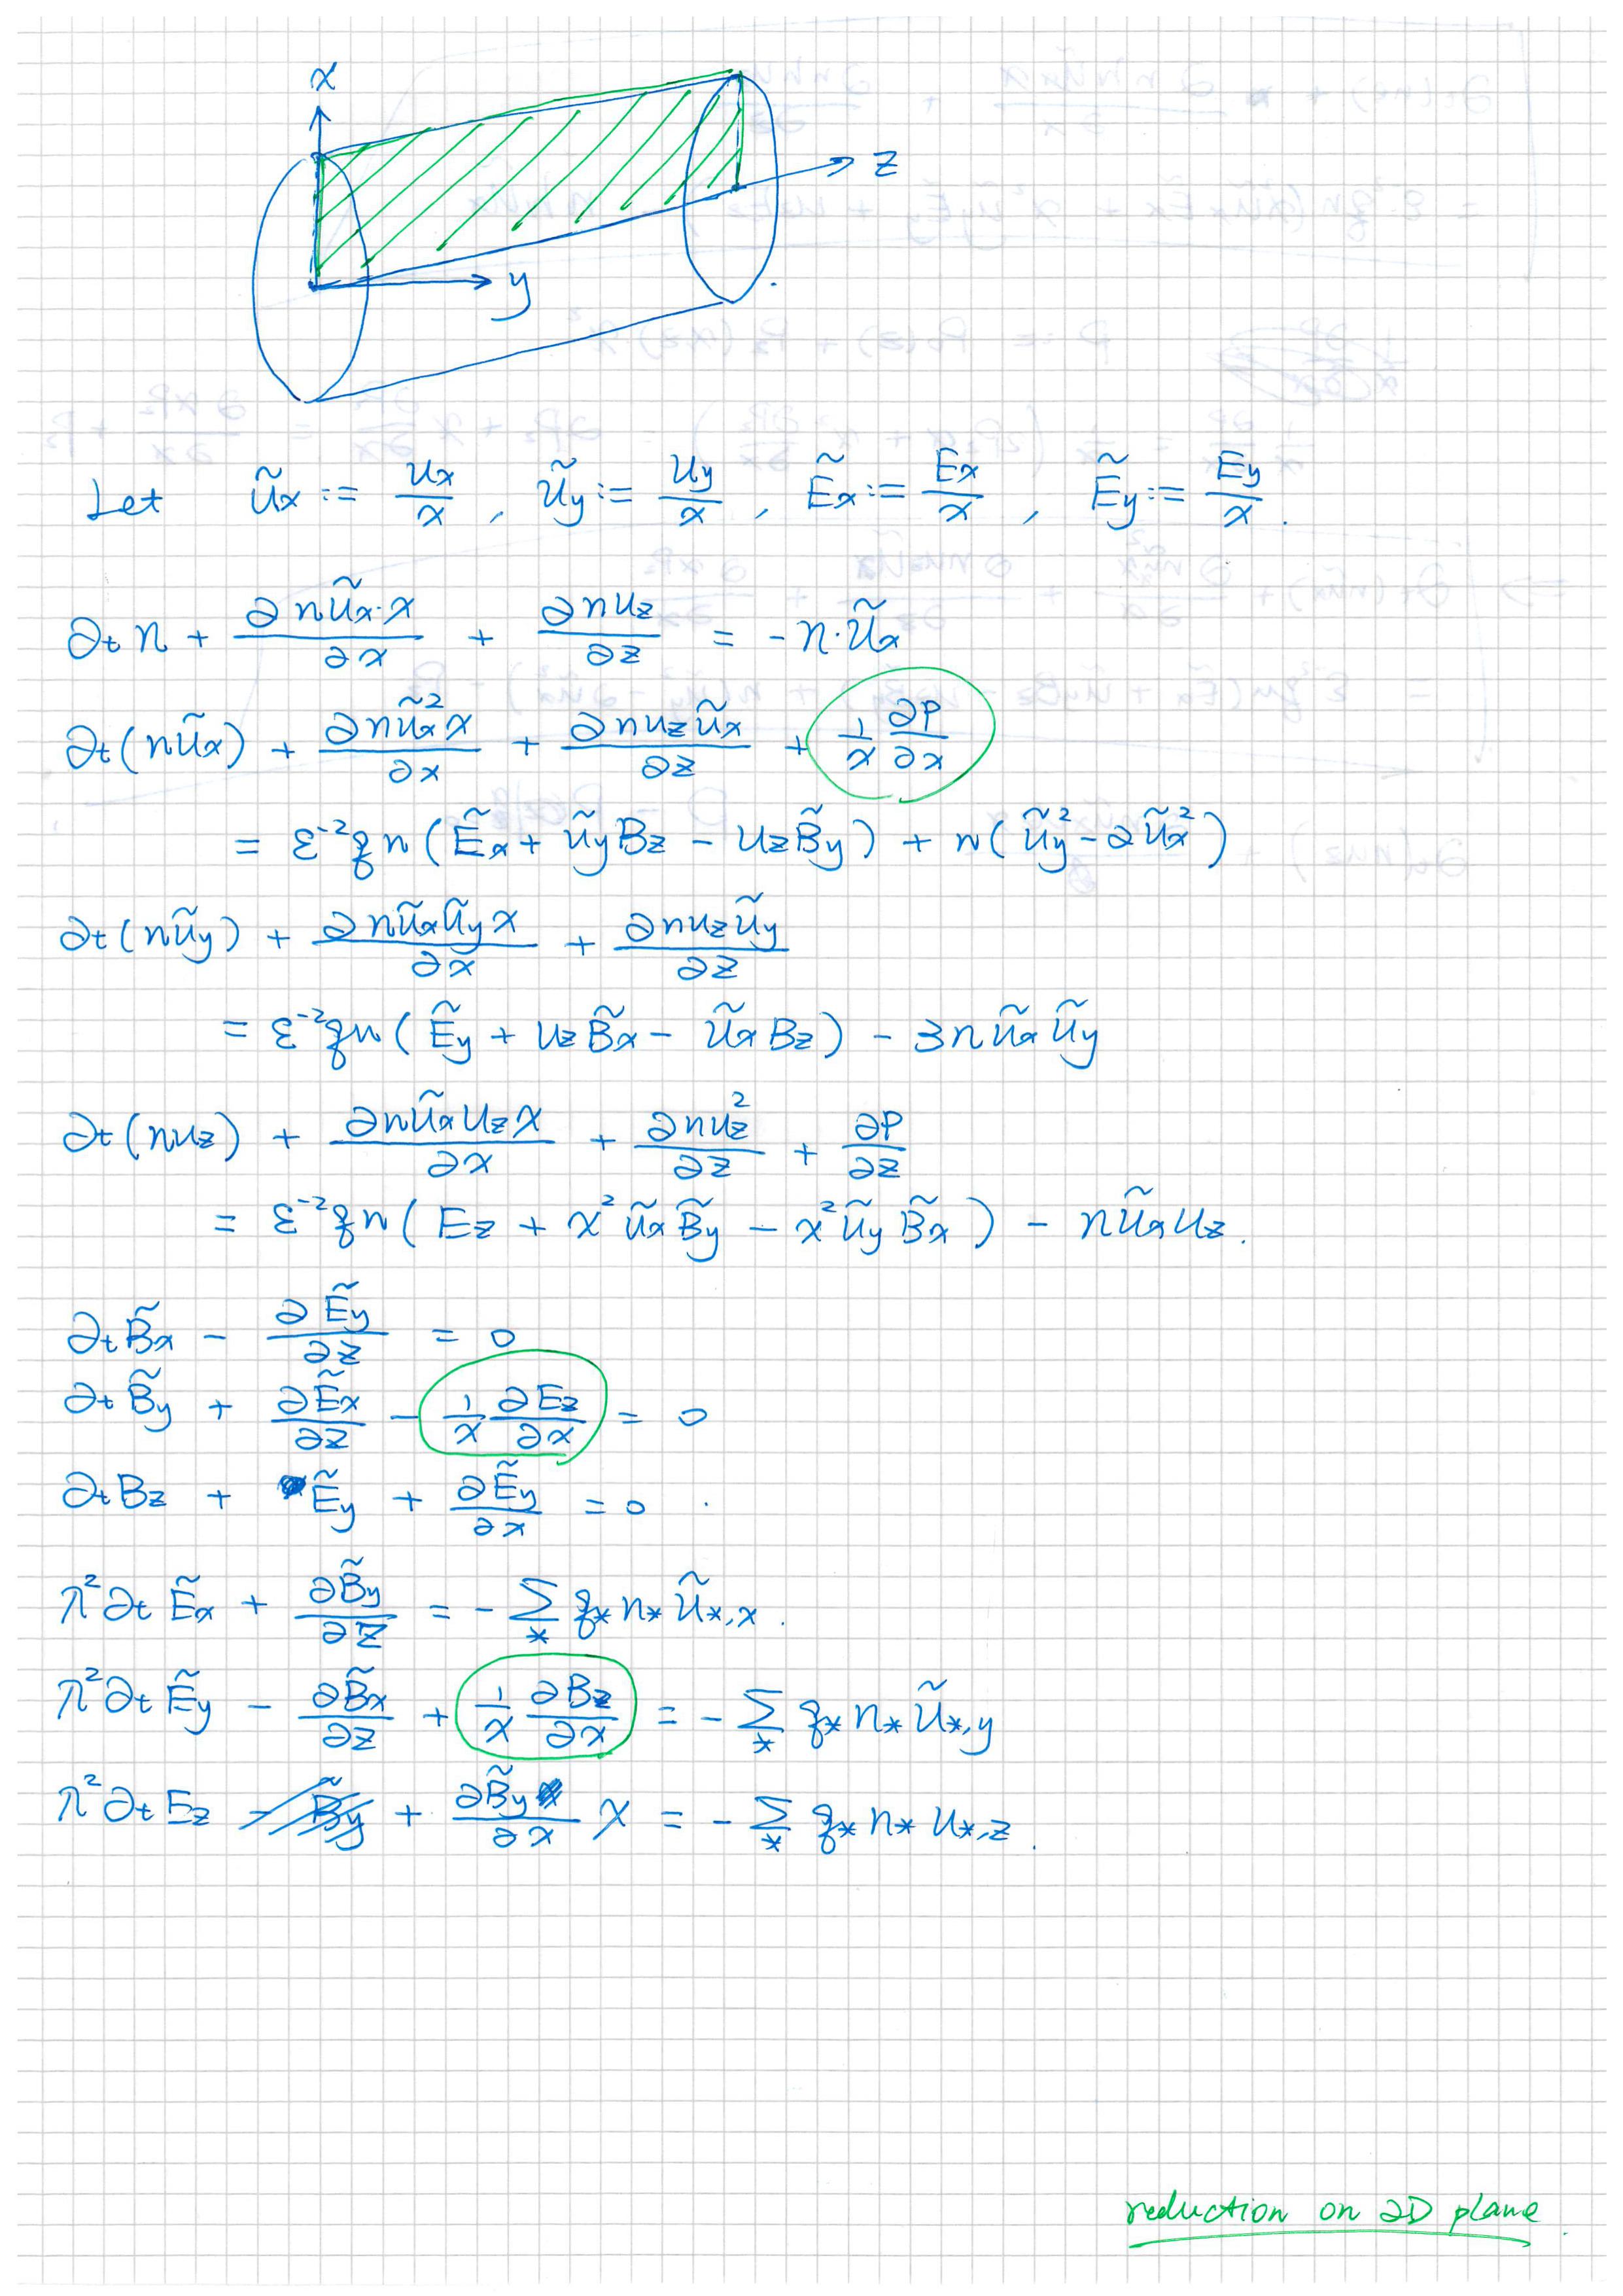 x
z
y
Let ũx := ux/x , ũy := uy/x , Ẽx := Ex/x , Ẽy := Ey/x .
∂t n + ∂nũx·x/∂x + ∂nuz/∂z = -n·ũx
∂t(nũx) + ∂nũx²x/∂x + ∂nuzũx/∂z + 1/x ∂P/∂x
= ε⁻²qn(Ẽx + ũyBz - uzB̃y) + n(ũy² - 2ũx²)
∂t(nũy) + ∂nũxũyx/∂x + ∂nuzũy/∂z
= ε⁻²qn(Ẽy + uzB̃x - ũxBz) - 3nũxũy
∂t(nuz) + ∂nũxuzx/∂x + ∂nuz²/∂z + ∂P/∂z
= ε⁻²qn(Ez + x²ũxB̃y - x²ũyB̃x) - nũxuz.
∂tB̃x - ∂Ẽy/∂z = 0
∂tB̃y + ∂Ẽx/∂z - 1/x ∂Ez/∂x = 0
∂tBz + Ẽy + ∂Ẽy/∂x = 0 .
λ²∂tẼx + ∂B̃y/∂z = -∑* q*n*ũ*,x .
λ²∂tẼy - ∂B̃x/∂z + 1/x ∂Bz/∂x = -∑* q*n*ũ*,y
λ²∂tEz - B̃y + ∂B̃y/∂x x = -∑* q*n*u*,z .
reduction on 2D plane.